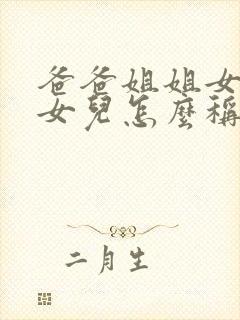 爸爸姐姐女
女兒怎麼稱
二月生